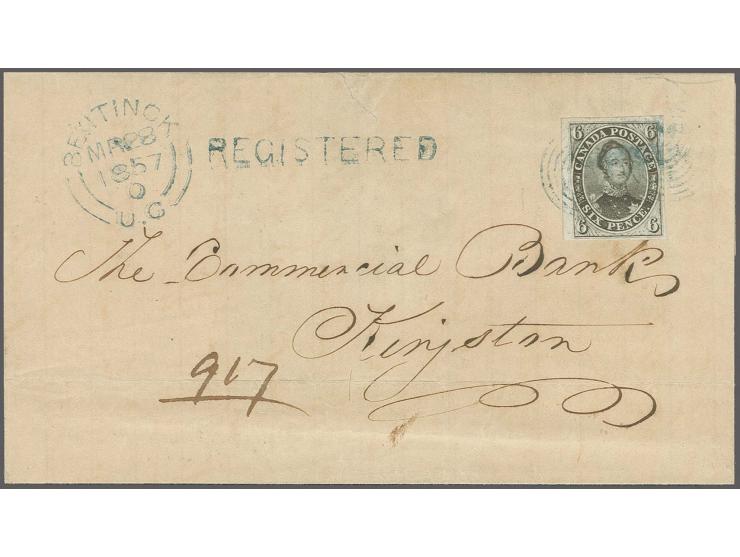 BENTINCK
MAR 28
1857
U.C
REGISTERED
6 6
CANADA POSTAGE
SIX PENCE.
6 6
The Commercial Bank
Kingston
917